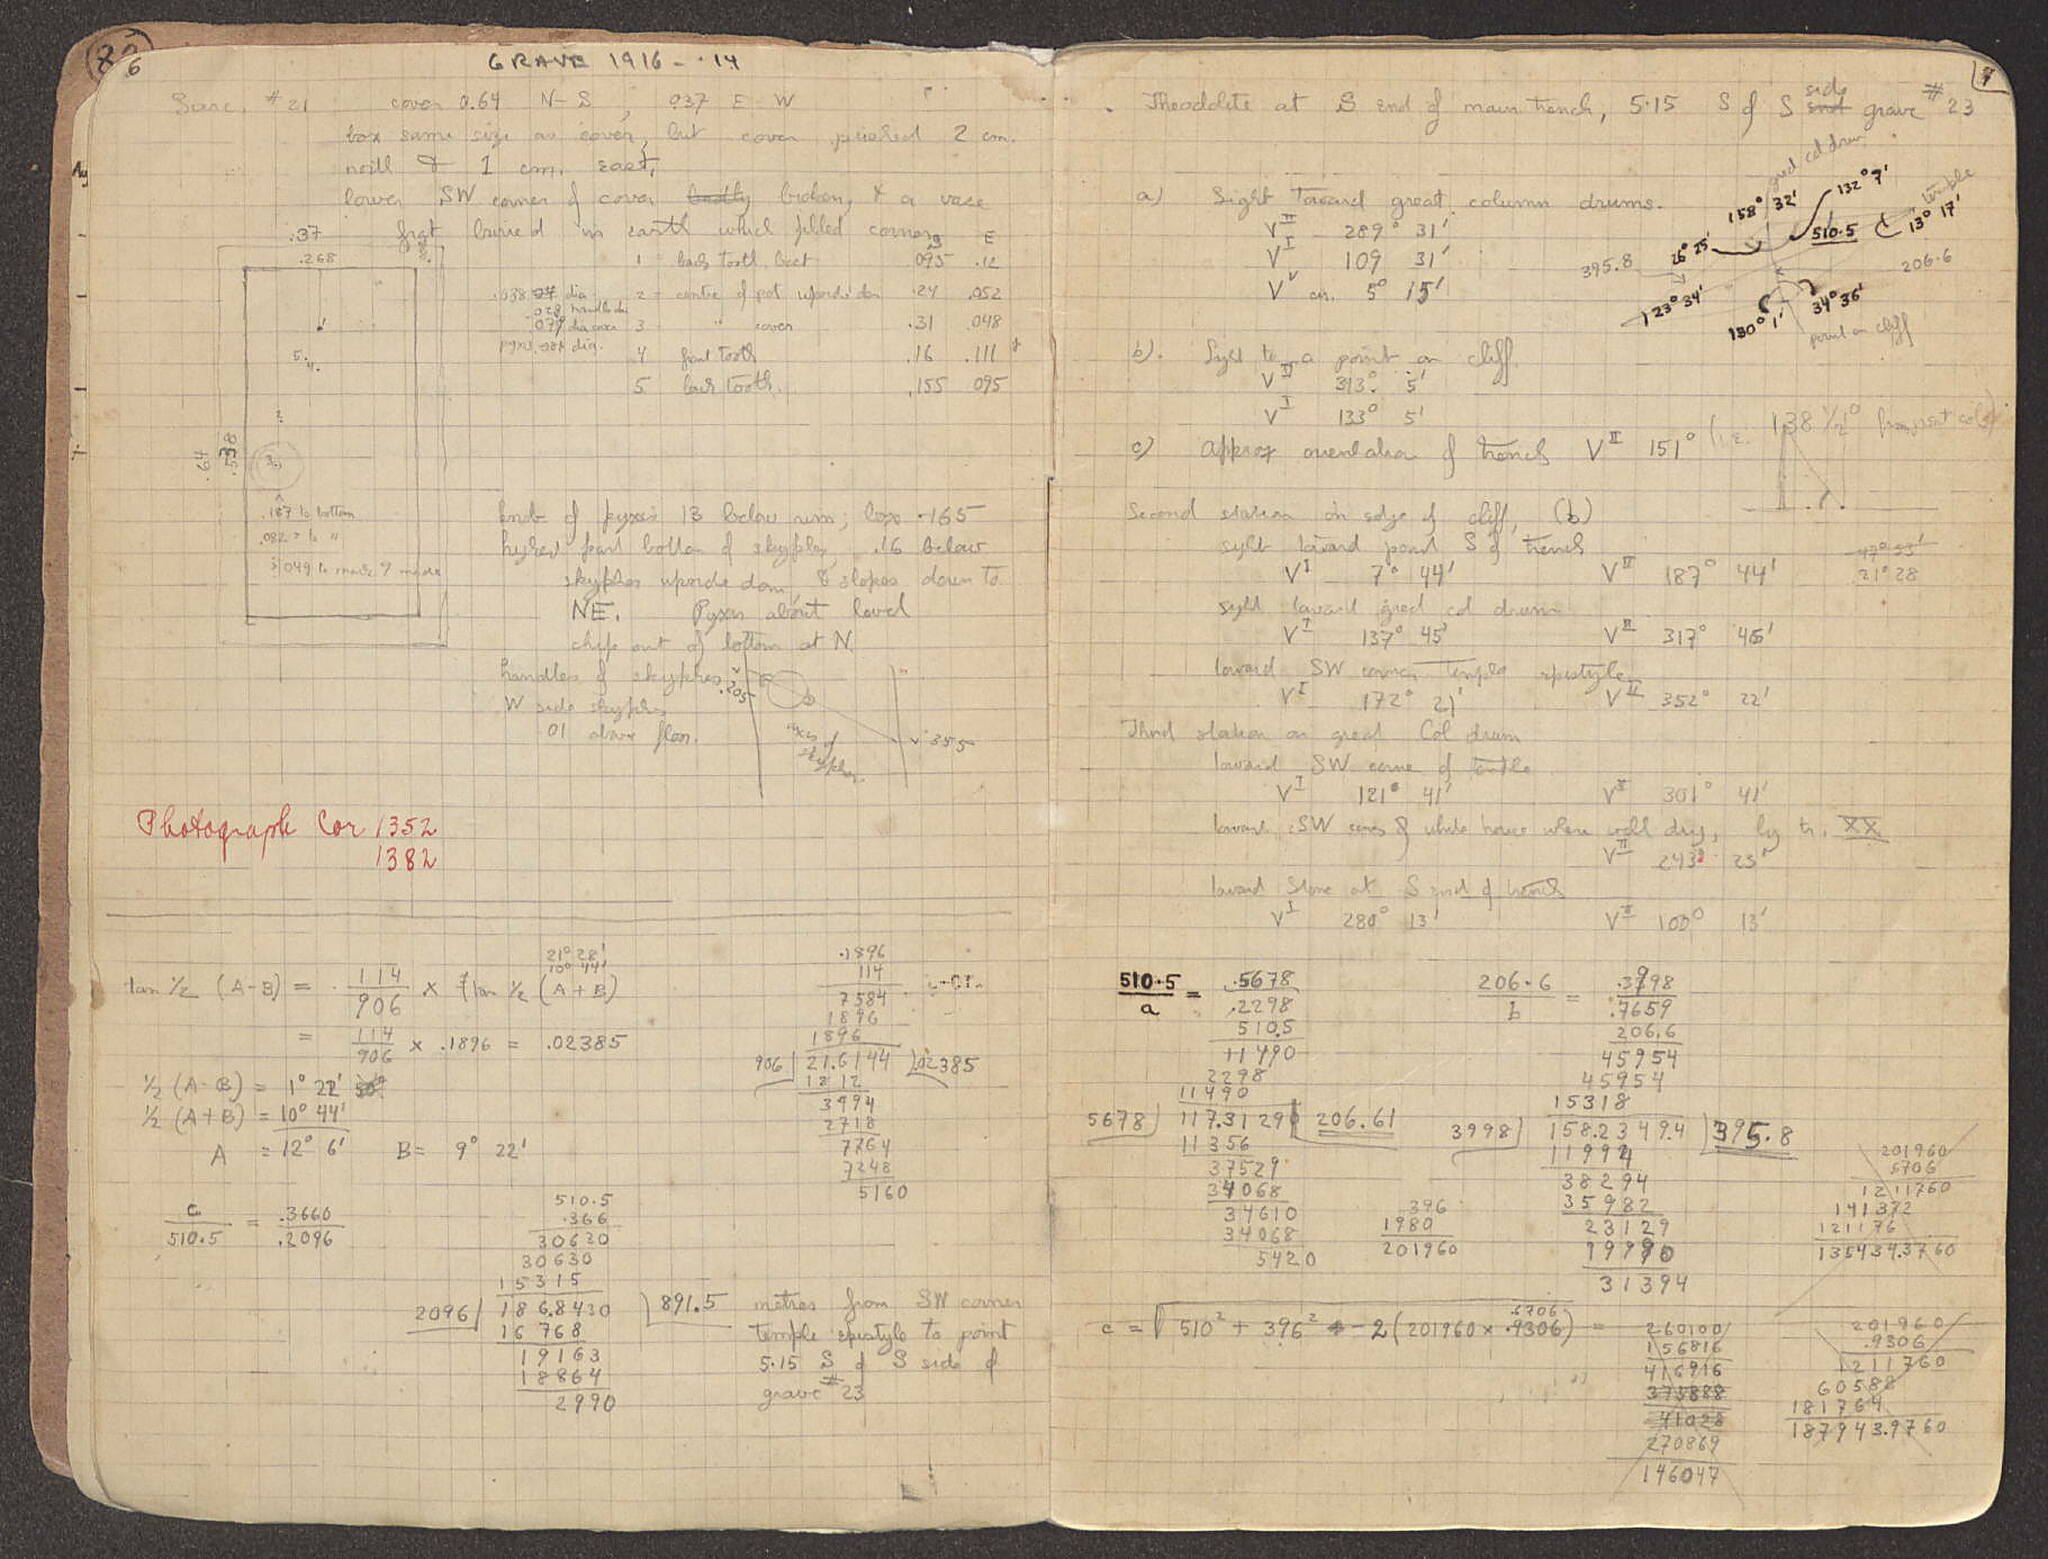 6
GRAVE 1916-14
Sarc. #21 cover 0.64 N-S, 0.37 E-W
box same size as cover, but cover pushed 2 cm.
north & 1 cm. east.
lower SW corner of cover badly broken, & a vase
frgt buried in earth which filled corner
.37
.268
S E
1 back tooth .095 .12
2 centre of pot upside down .24 .052
3 " cover .31 .048
4 front tooth .16 .111
5 back tooth .155 .095
.64
.538
.187 to bottom
.082
knob of pyxis 13 below rim; box .165
highest part bottom of skyphos, .16 below
skyphos upside down, & slopes down to
NE. Pyxis about level
chip out of bottom at N
handles of skyphos
W side skyphos
01 above floor.
.205
axis of skyphos
.355
Photograph Cor 1352
1382
21° 28'
10° 44'
tan ½ (A-B) = 114/906 × tan ½ (A+B)
= 114/906 × .1896 = .02385
½ (A-B) = 1° 22'
½ (A+B) = 10° 44'
A = 12° 6' B = 9° 22'
.1896
114
7584
1896
1896
906 21.6144 .02385
1812
3494
2718
7764
7248
5160
c/510.5 = .3660/.2096
510.5
.366
30630
30630
15315
2096 186.8430 891.5 metres from SW corner
16 768 temple epistyle to point
19163 5.15 S of S side of
18864 grave #23
2990
7
Theodolite at S end of main trench, 5.15 S of S side end grave #23
a) Sight toward great column drums.
V II 289° 31'
V I 109 31'
5° 15'
great col drum
temple
158° 32'
132° 7'
510.5
13° 17'
26° 25'
395.8
206.6
123° 34'
130° 1'
34° 36'
point on cliff
b). Sight to a point on cliff
V II 313° 5'
V I 133° 5'
c) Approx orientation of trench V II 151° (i.e. 138 ½° from great col.)
Second station on edge of cliff, (b)
sight toward point S of trench
V I 7° 44' V II 187° 44'
47° 53'
21° 28
sight toward great col drum
V I 137° 45' V II 317° 46'
toward SW corner temple epistyle
V I 172° 21' V II 352° 22'
Third station on great Col drum
toward SW corner of temple
V I 121° 41' V II 301° 41'
toward SW corner of white house where well dug, by tr. XX
V II 243° 25'
toward stone at S end of trench
V I 280° 13' V II 100° 13'
510.5/a = .5678/.2298
510.5
11490
2298
11490
5678 117.3129 206.61
11356
37529
34068
34610
34068
5420
206.6/b = .3998/.7659
206.6
45954
45954
15318
3998 158.23494 395.8
11994
38294
35982
23129
19990
31394
396
1980
201960
201960
6706
1211760
141372
121176
135434.3760
c = √510² + 396² - 2 (201960 × .9306) =
.6706
260100
156816
416916
373888
41028
270869
146047
201960
.9306
1211760
60588
181764
187943.9760